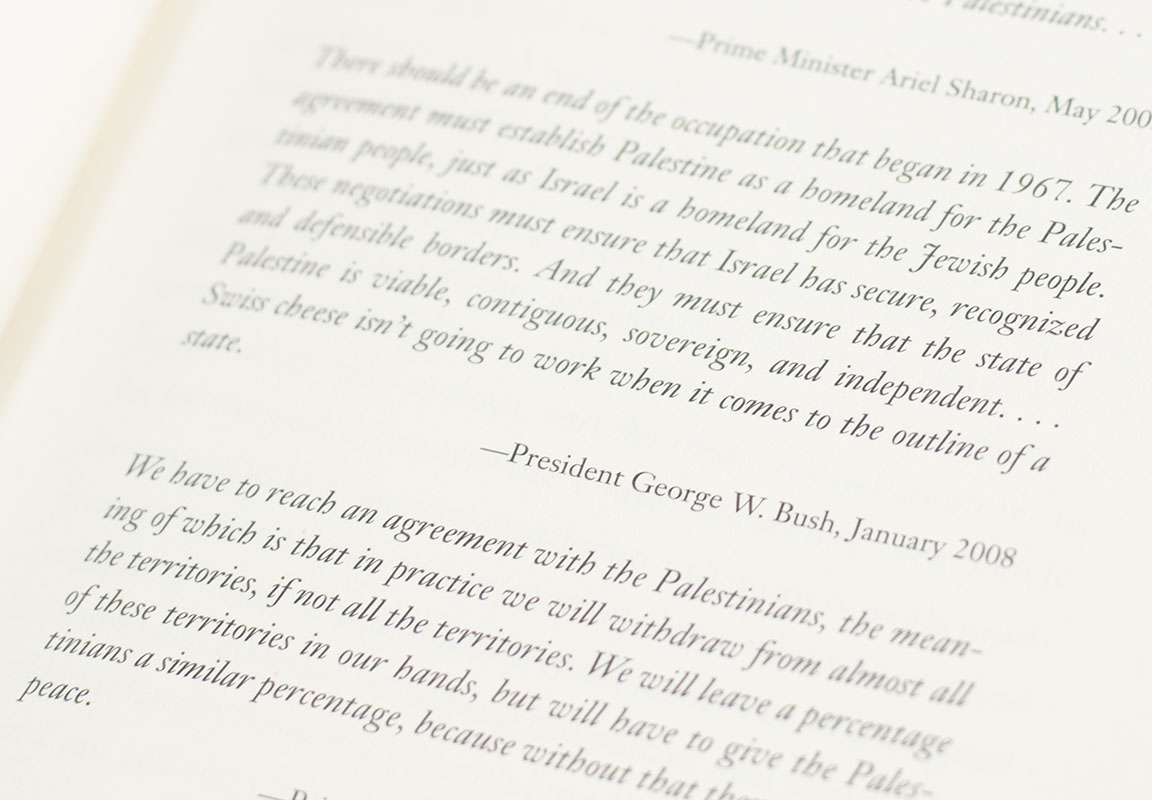 Palestinians. . .
—Prime Minister Ariel Sharon, May 200
There should be an end of the occupation that began in 1967. The
agreement must establish Palestine as a homeland for the Pales-
tinian people, just as Israel is a homeland for the Jewish people.
These negotiations must ensure that Israel has secure, recognized
and defensible borders. And they must ensure that the state of
Palestine is viable, contiguous, sovereign, and independent. . . .
Swiss cheese isn’t going to work when it comes to the outline of a
state.
—President George W. Bush, January 2008
We have to reach an agreement with the Palestinians, the mean-
ing of which is that in practice we will withdraw from almost all
the territories, if not all the territories. We will leave a percentage
of these territories in our hands, but will have to give the Pales-
tinians a similar percentage, because without that
peace.